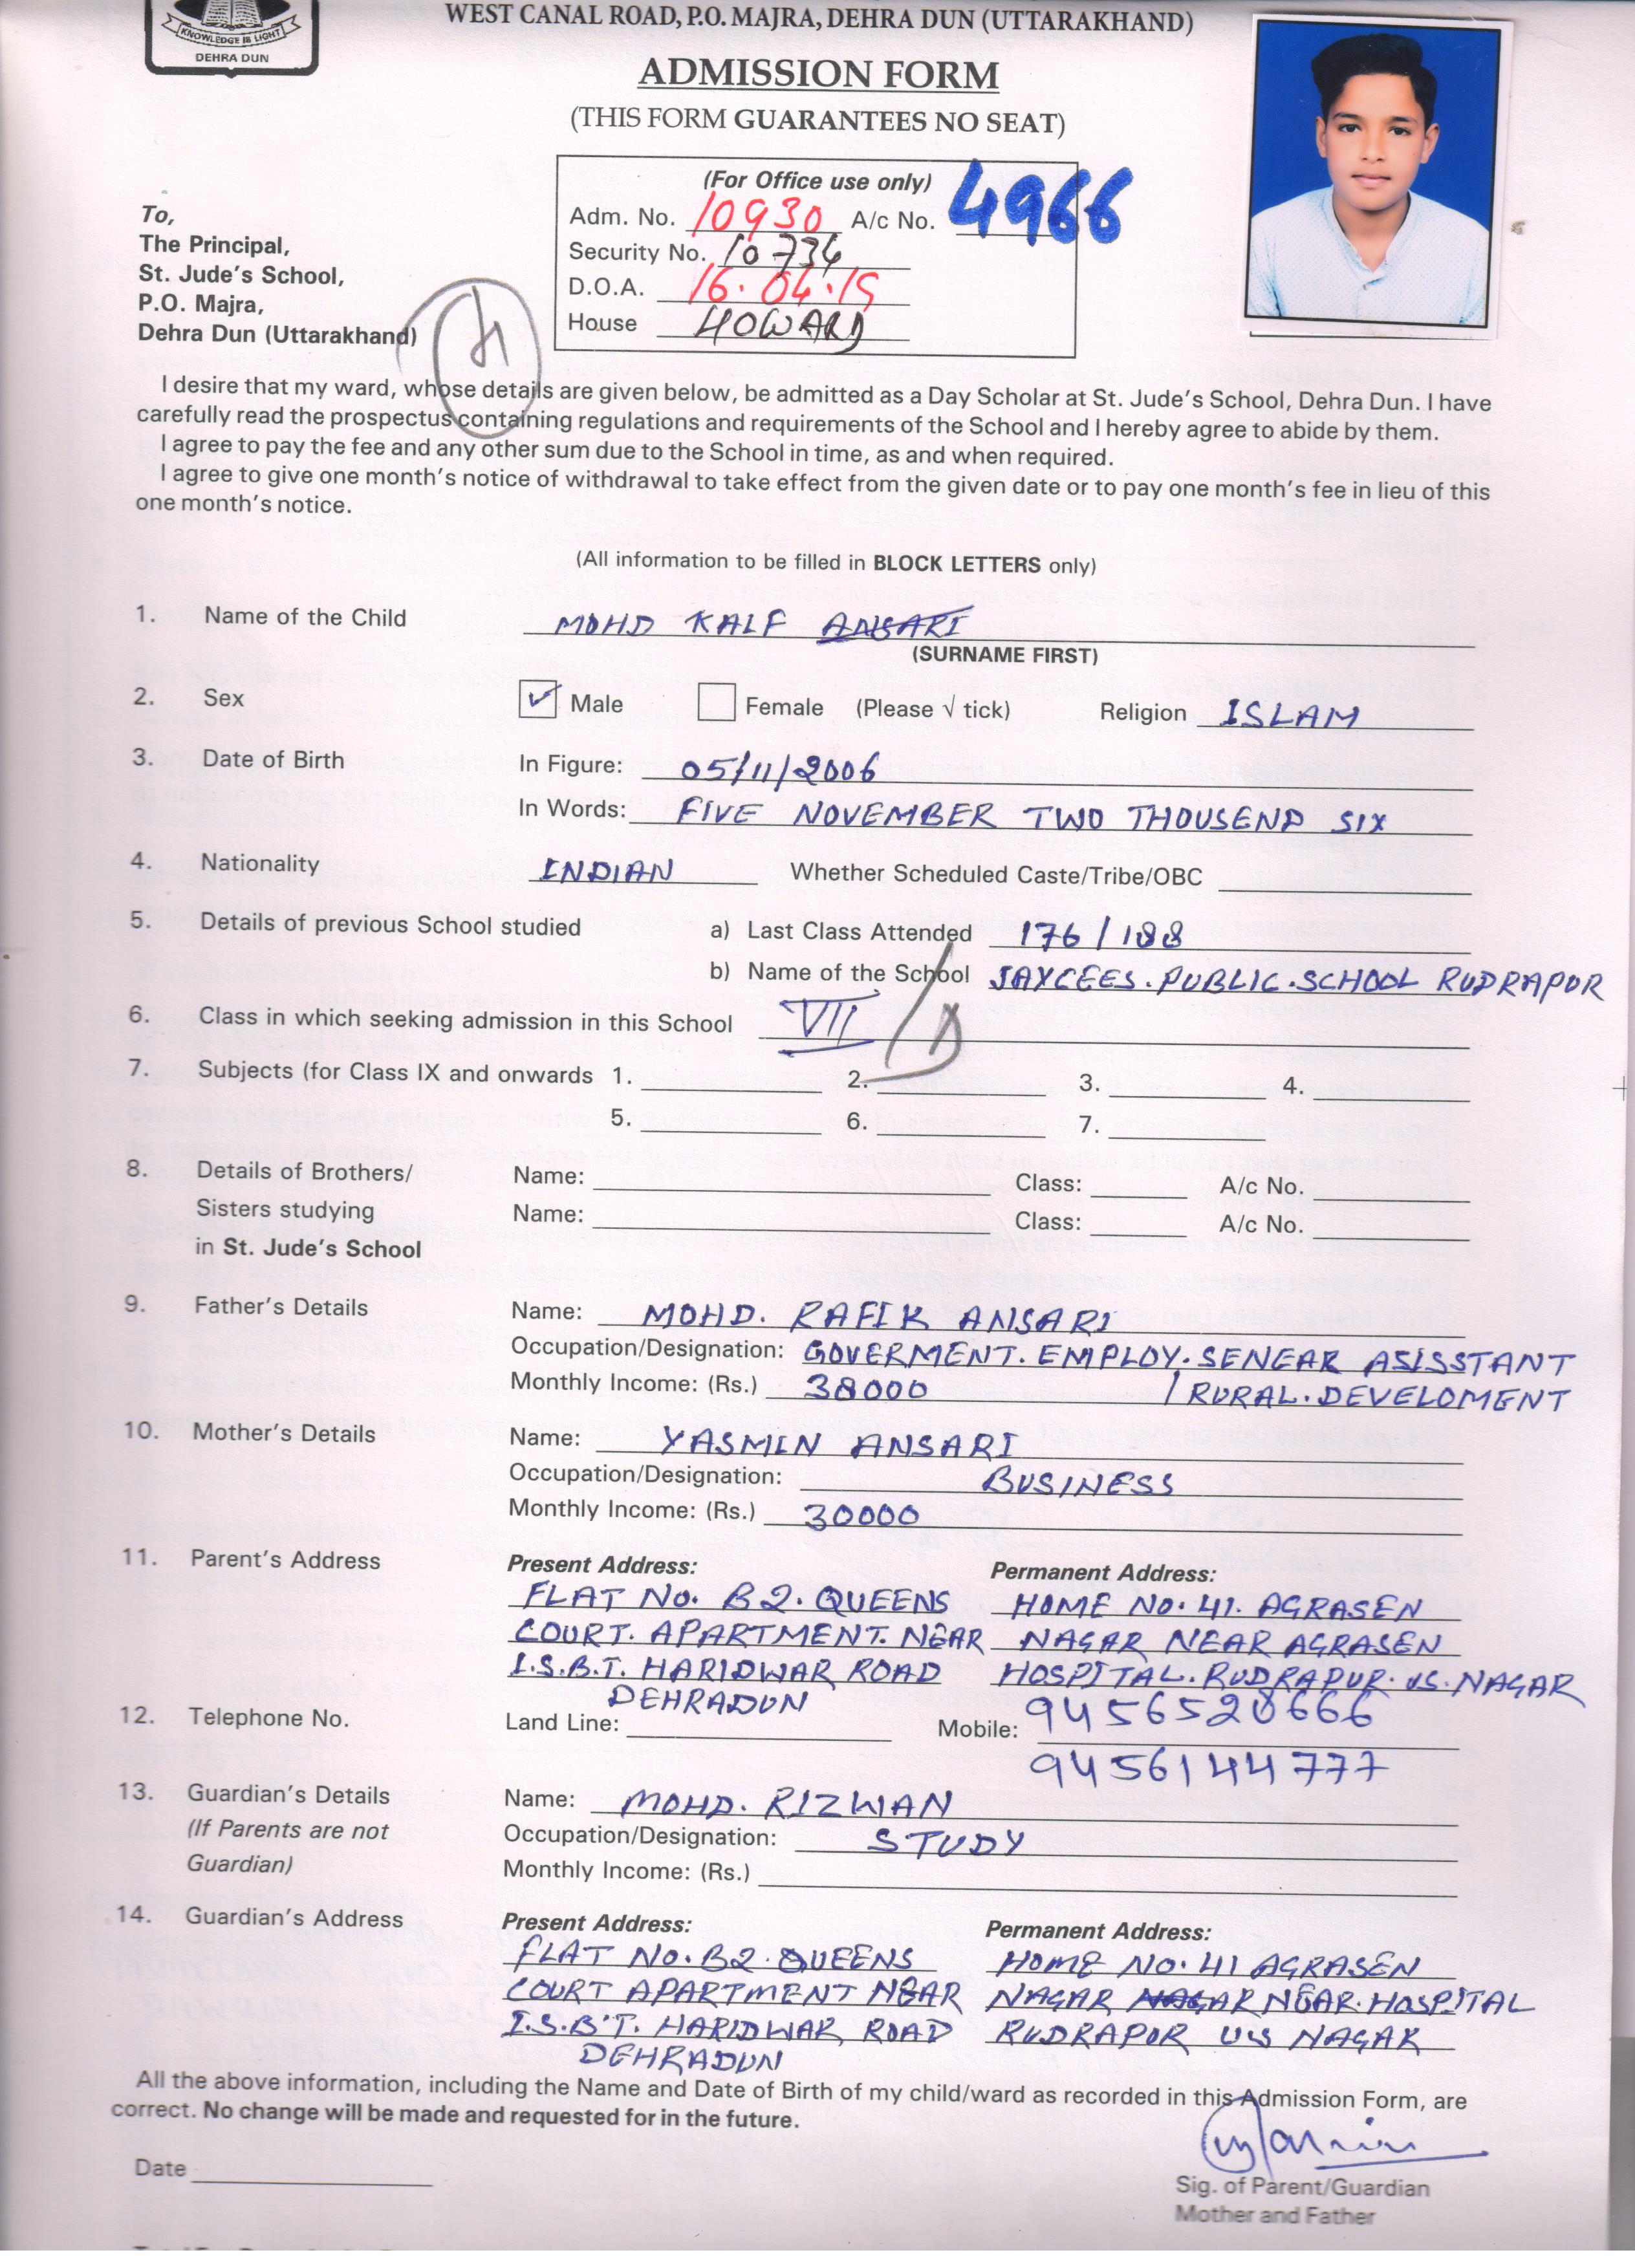 KNOWLEDGE IS LIGHT
DEHRA DUN
WEST CANAL ROAD, P.O. MAJRA, DEHRA DUN (UTTARAKHAND)
ADMISSION FORM
(THIS FORM GUARANTEES NO SEAT)
(For Office use only)
Adm. No. 10930 A/c No. 4966
Security No. 10734
D.O.A. 16.04.19
House HOWARD
To,
The Principal,
St. Jude's School,
P.O. Majra,
Dehra Dun (Uttarakhand)
I desire that my ward, whose details are given below, be admitted as a Day Scholar at St. Jude's School, Dehra Dun. I have
carefully read the prospectus containing regulations and requirements of the School and I hereby agree to abide by them.
I agree to pay the fee and any other sum due to the School in time, as and when required.
I agree to give one month's notice of withdrawal to take effect from the given date or to pay one month's fee in lieu of this
one month's notice.
(All information to be filled in BLOCK LETTERS only)
1. Name of the Child MOHD KALF ANSARI
(SURNAME FIRST)
2. Sex Male Female (Please √ tick) Religion ISLAM
3. Date of Birth In Figure: 05/11/2006
In Words: FIVE NOVEMBER TWO THOUSEND SIX
4. Nationality INDIAN Whether Scheduled Caste/Tribe/OBC
5. Details of previous School studied a) Last Class Attended 176/188
b) Name of the School JAYCEES.PUBLIC.SCHOOL RUDRAPOR
6. Class in which seeking admission in this School VII
7. Subjects (for Class IX and onwards 1. 2. 3. 4.
5. 6. 7.
8. Details of Brothers/ Name: Class: A/c No.
Sisters studying Name: Class: A/c No.
in St. Jude's School
9. Father's Details Name: MOHD. RAFIK ANSARI
Occupation/Designation: GOVERMENT. EMPLOY. SENEAR ASISSTANT
Monthly Income: (Rs.) 38000 / RURAL.DEVELOMENT
10. Mother's Details Name: YASMIN ANSARI
Occupation/Designation: BUSINESS
Monthly Income: (Rs.) 30000
11. Parent's Address Present Address: Permanent Address:
FLAT NO. B2. QUEENS HOME NO. 41. AGRASEN
COURT. APARTMENT. NEAR NAGAR NEAR AGRASEN
I.S.B.T. HARIDWAR ROAD HOSPITAL.RUDRAPUR.US.NAGAR
DEHRADUN
12. Telephone No. Land Line: Mobile: 9456520666
9456144777
13. Guardian's Details Name: MOHD. RIZWAN
(If Parents are not Occupation/Designation: STUDY
Guardian) Monthly Income: (Rs.)
14. Guardian's Address Present Address: Permanent Address:
FLAT NO. B2. QUEENS HOME NO. 41 AGRASEN
COURT APARTMENT NEAR NAGAR NAGAR NEAR.HOSPITAL
I.S.B.T. HARIDWAR ROAD RUDRAPOR US NAGAR
DEHRADUN
All the above information, including the Name and Date of Birth of my child/ward as recorded in this Admission Form, are
correct. No change will be made and requested for in the future.
Date
Sig. of Parent/Guardian
Mother and Father